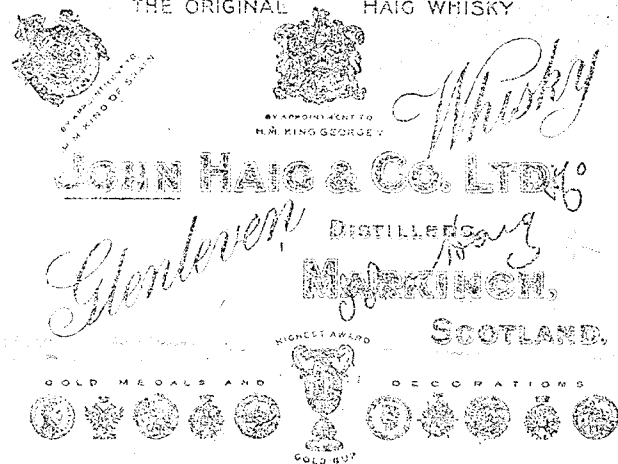 THE ORIGINAL HAIG WHISKY
BY APPOINTMENT TO
H.M. KING OF SPAIN
BY APPOINTMENT TO
H.M. KING GEORGE V
Whisky
JOHN HAIG & CO. LTD.
Glenleven
DISTILLERS
Haig
MARKINCH,
SCOTLAND.
HIGHEST AWARD
GOLD MEDALS AND DECORATIONS
GOLD CUP